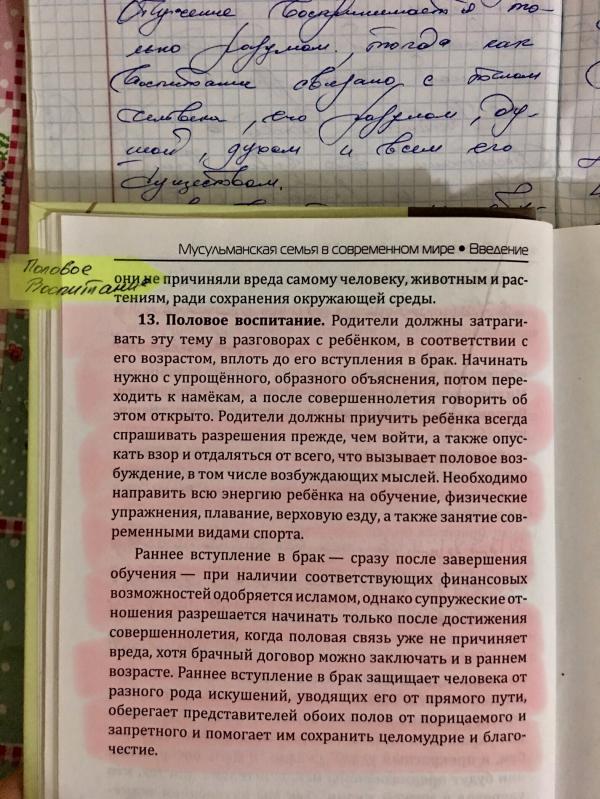 Обучение воспринимается то-
лько разумом, тогда как
воспитание связано с телом
человека, его разумом, ду-
шой, духом и всем его
существом.
Мусульманская семья в современном мире • Введение
Половое
Воспитание
они не причиняли вреда самому человеку, животным и рас-
тениям, ради сохранения окружающей среды.
13. Половое воспитание. Родители должны затраги-
вать эту тему в разговорах с ребёнком, в соответствии с
его возрастом, вплоть до его вступления в брак. Начинать
нужно с упрощённого, образного объяснения, потом пере-
ходить к намёкам, а после совершеннолетия говорить об
этом открыто. Родители должны приучить ребёнка всегда
спрашивать разрешения прежде, чем войти, а также опус-
кать взор и отдаляться от всего, что вызывает половое воз-
буждение, в том числе возбуждающих мыслей. Необходимо
направить всю энергию ребёнка на обучение, физические
упражнения, плавание, верховую езду, а также занятие сов-
ременными видами спорта.
Раннее вступление в брак — сразу после завершения
обучения — при наличии соответствующих финансовых
возможностей одобряется исламом, однако супружеские от-
ношения разрешается начинать только после достижения
совершеннолетия, когда половая связь уже не причиняет
вреда, хотя брачный договор можно заключать и в раннем
возрасте. Раннее вступление в брак защищает человека от
разного рода искушений, уводящих его от прямого пути,
оберегает представителей обоих полов от порицаемого и
запретного и помогает им сохранить целомудрие и благо-
честие.